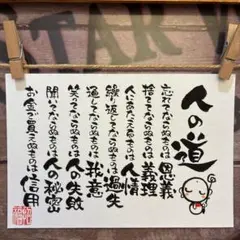 人の道
忘れてならぬものは 恩義
捨ててならぬものは 義理
人にあたえるものは 人情
繰り返してならぬものは 過失
通してならぬものは 我意
笑ってならぬものは 人の失敗
聞いてならぬものは 人の秘密
お金で買えぬものは 信用